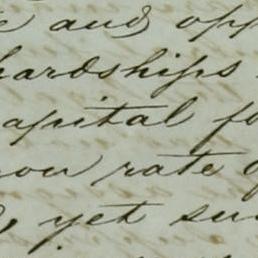 e and opp
hardships
apital fo
our rate o
, yet su